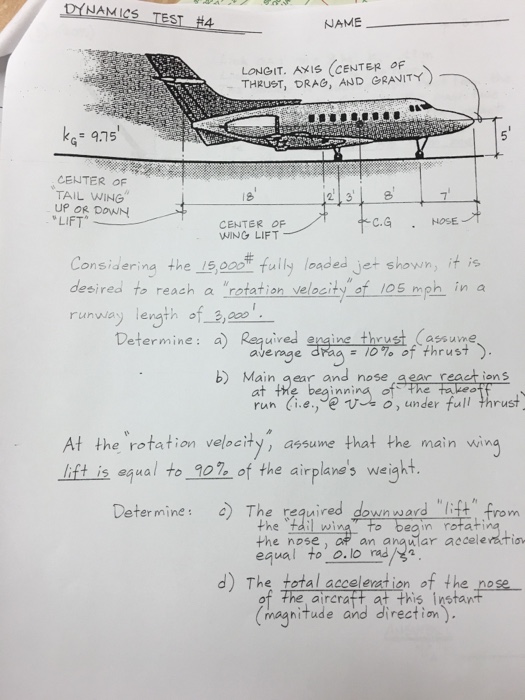 DYNAMICS TEST #4
NAME
LONGIT. AXIS (CENTER OF
THRUST, DRAG, AND GRAVITY)
kG = 9.75'
5'
CENTER OF
"TAIL WING"
UP OR DOWN
"LIFT"
18'
2'
3'
8'
7'
CENTER OF
WING LIFT
C.G.
NOSE
Considering the 15,000# fully loaded jet shown, it is
desired to reach a "rotation velocity" of 105 mph in a
runway length of 3,000'.
Determine: a) Required engine thrust (assume
average drag = 10% of thrust).
b) Main gear and nose gear reactions
at the beginning of the takeoff
run (i.e., @ v = 0, under full thrust)
At the "rotation velocity", assume that the main wing
lift is equal to 90% of the airplane's weight.
Determine: c) The required downward "lift" from
the "tail wing" to begin rotating
the nose, at an angular acceleration
equal to 0.10 rad/s².
d) The total acceleration of the nose
of the aircraft at this instant
(magnitude and direction).